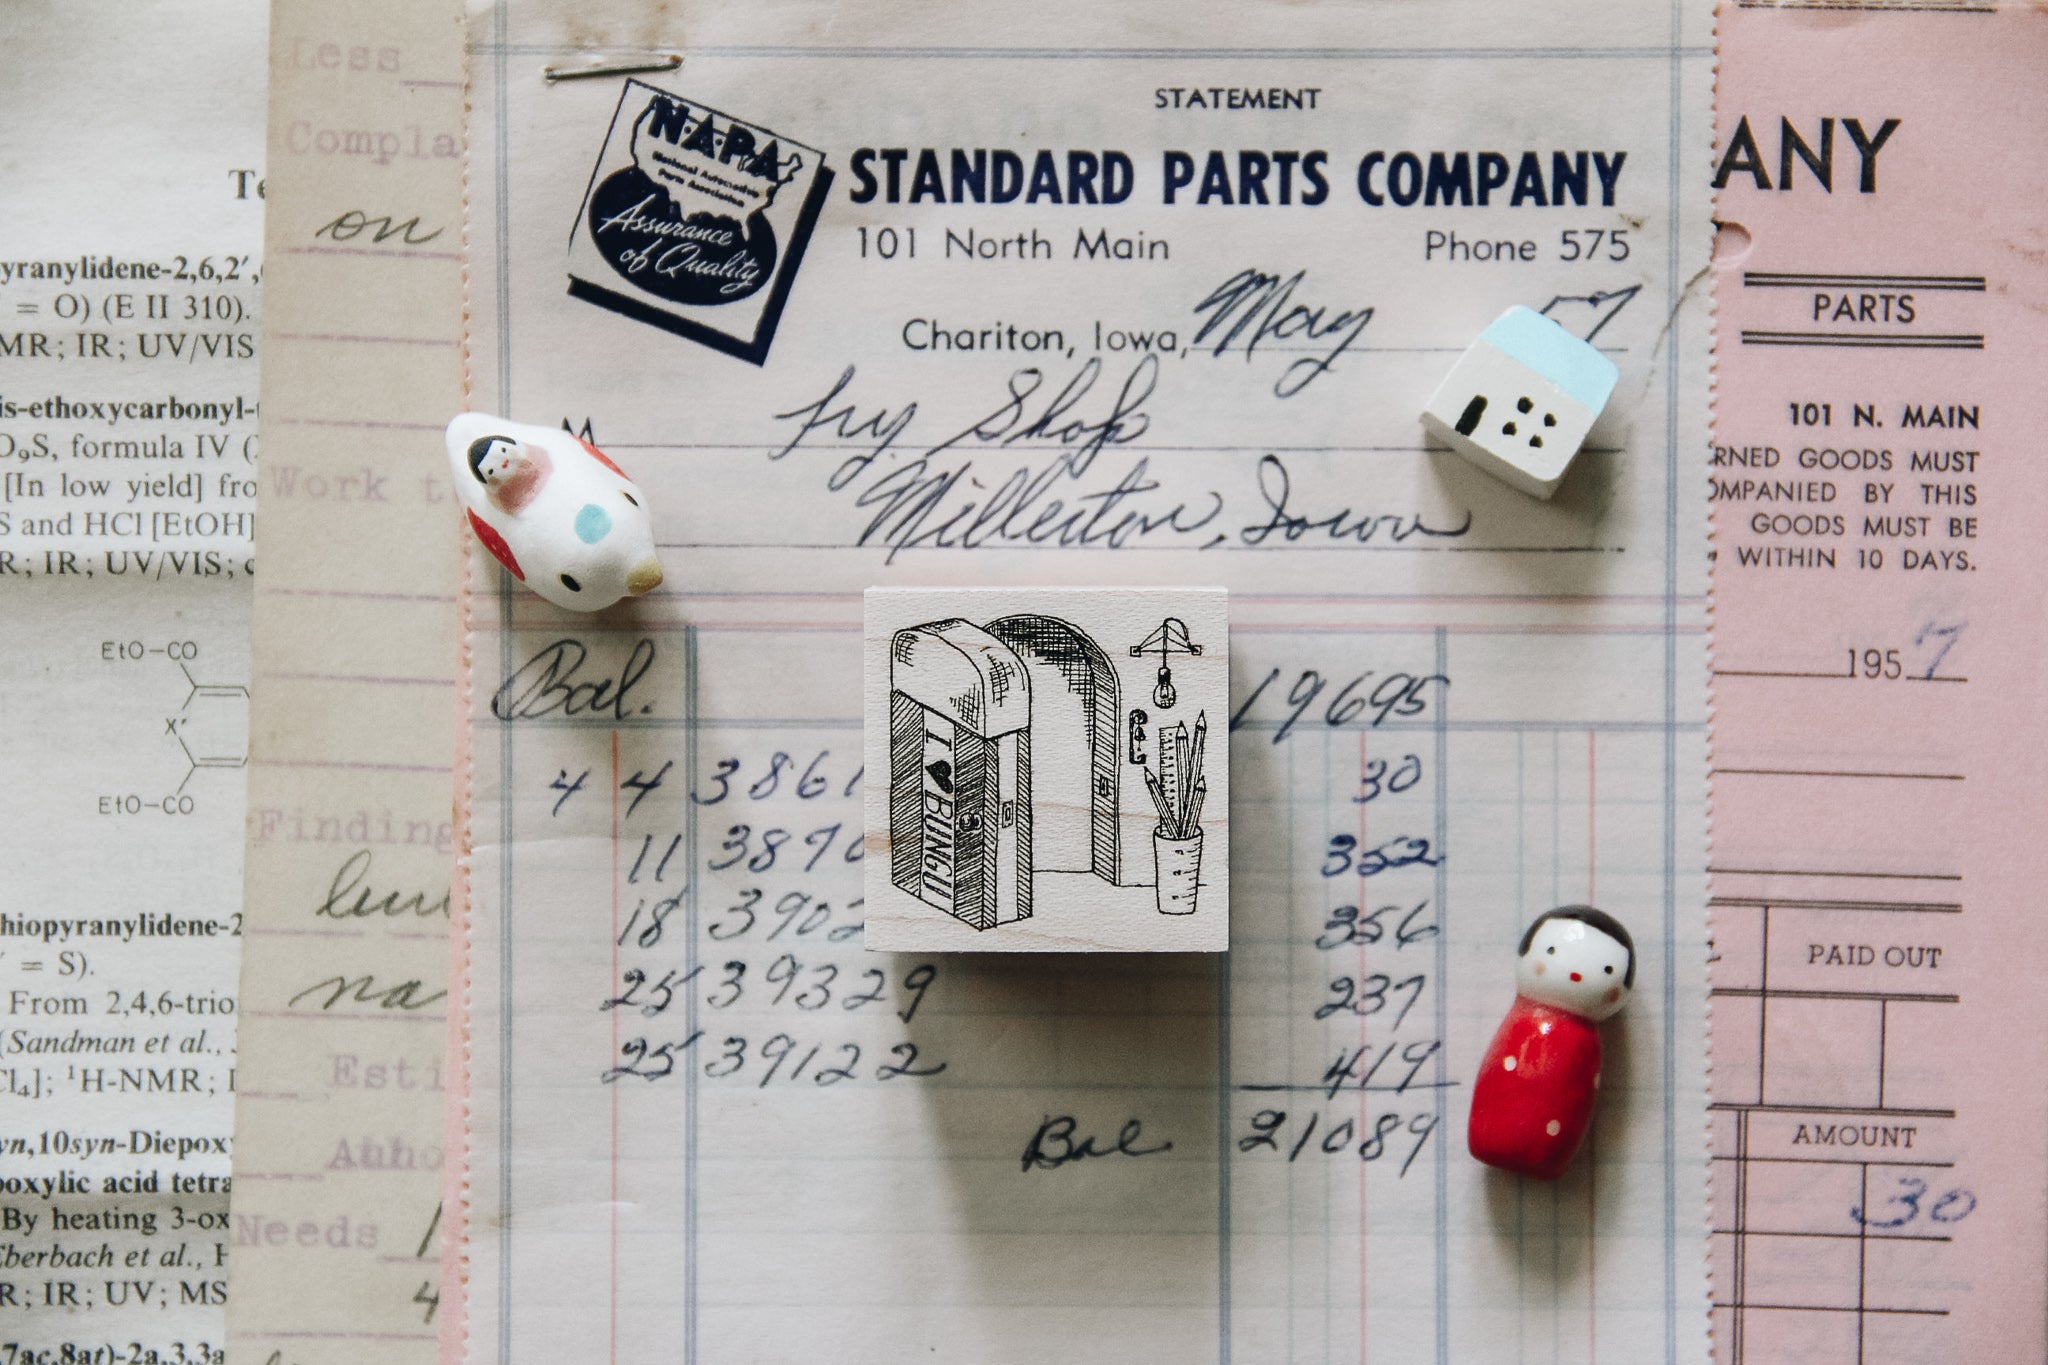 Te
yranylidene-2,6,2′,
= O) (E II 310).
MR; IR; UV/VIS
is-ethoxycarbonyl-
O₉S, formula IV (
[In low yield] fro
S and HCl [EtOH]
R; IR; UV/VIS; c
EtO-CO
X′
EtO-CO
hiopyranylidene-2
′ = S).
From 2,4,6-trio
(Sandman et al.,
Cl₄]; ¹H-NMR; I
yn,10syn-Diepoxy
boxylic acid tetra
By heating 3-ox
Eberbach et al., H
R; IR; UV; MS
,7ac,8at)-2a,3,3a
Less
Compla
on
Work t
Finding
na
Esti
Autho
Needs
4
STATEMENT
N·A·P·A
National Automotive
Parts Association
Assurance
of Quality
STANDARD PARTS COMPANY
101 North Main Phone 575
Chariton, Iowa, May 57
M Fry Shop
Millerton, Iowa
Bal. 19695
4 4 3861 30
11 3870 352
18 3902 356
25 39329 237
25 39122 419
Bal 21089
I ♥ BUNGU
ANY
PARTS
101 N. MAIN
RNED GOODS MUST
OMPANIED BY THIS
GOODS MUST BE
WITHIN 10 DAYS.
1957
PAID OUT
AMOUNT
30